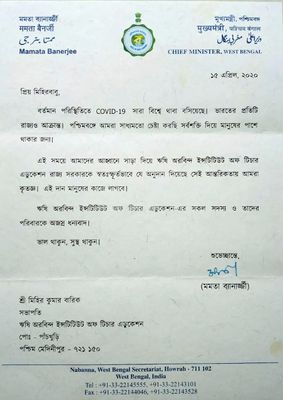 মমতা ব্যানার্জী
ममता बैनर्जी
ممتا بنرجی
Mamata Banerjee
মুখ্যমন্ত্রী, পশ্চিমবঙ্গ
मुख्यमंत्री, पश्चिम बंगाल
CHIEF MINISTER, WEST BENGAL
১৫ এপ্রিল, ২০২০
প্রিয় মিহিরবাবু,
বর্তমান পরিস্থিতিতে COVID-19 সারা বিশ্বে থাবা বসিয়েছে। ভারতের প্রতিটি
রাজ্যও আক্রান্ত। পশ্চিমবঙ্গে আমরা সাধ্যমতো চেষ্টা করছি সর্বশক্তি দিয়ে মানুষের পাশে
থাকার জন্য।
এই সময়ে আমাদের আহ্বানে সাড়া দিয়ে ঋষি অরবিন্দ ইন্সটিটিউট অফ টিচার
এডুকেশন রাজ্য সরকারকে স্বতঃস্ফূর্তভাবে যে অনুদান দিয়েছে সেই আন্তরিকতায় আমরা
কৃতজ্ঞ। এই দান মানুষের কাজে লাগবে।
ঋষি অরবিন্দ ইন্সটিটিউট অফ টিচার এডুকেশন-এর সকল সদস্য ও তাদের
পরিবারকে অজস্র ধন্যবাদ।
ভাল থাকুন, সুস্থ থাকুন।
শুভেচ্ছান্তে,
(মমতা ব্যানার্জী)
শ্রী মিহির কুমার বারিক
সভাপতি
ঋষি অরবিন্দ ইন্সটিটিউট অফ টিচার এডুকেশন
পোঃ - পাঁচখুড়ি
পশ্চিম মেদিনীপুর - ৭২১ ১৫০
Nabanna, West Bengal Secretariat, Howrah - 711 102
West Bengal, India
Tel : +91-33-22145555, +91-33-22143101
Fax : +91-33-22144046, +91-33-22143528